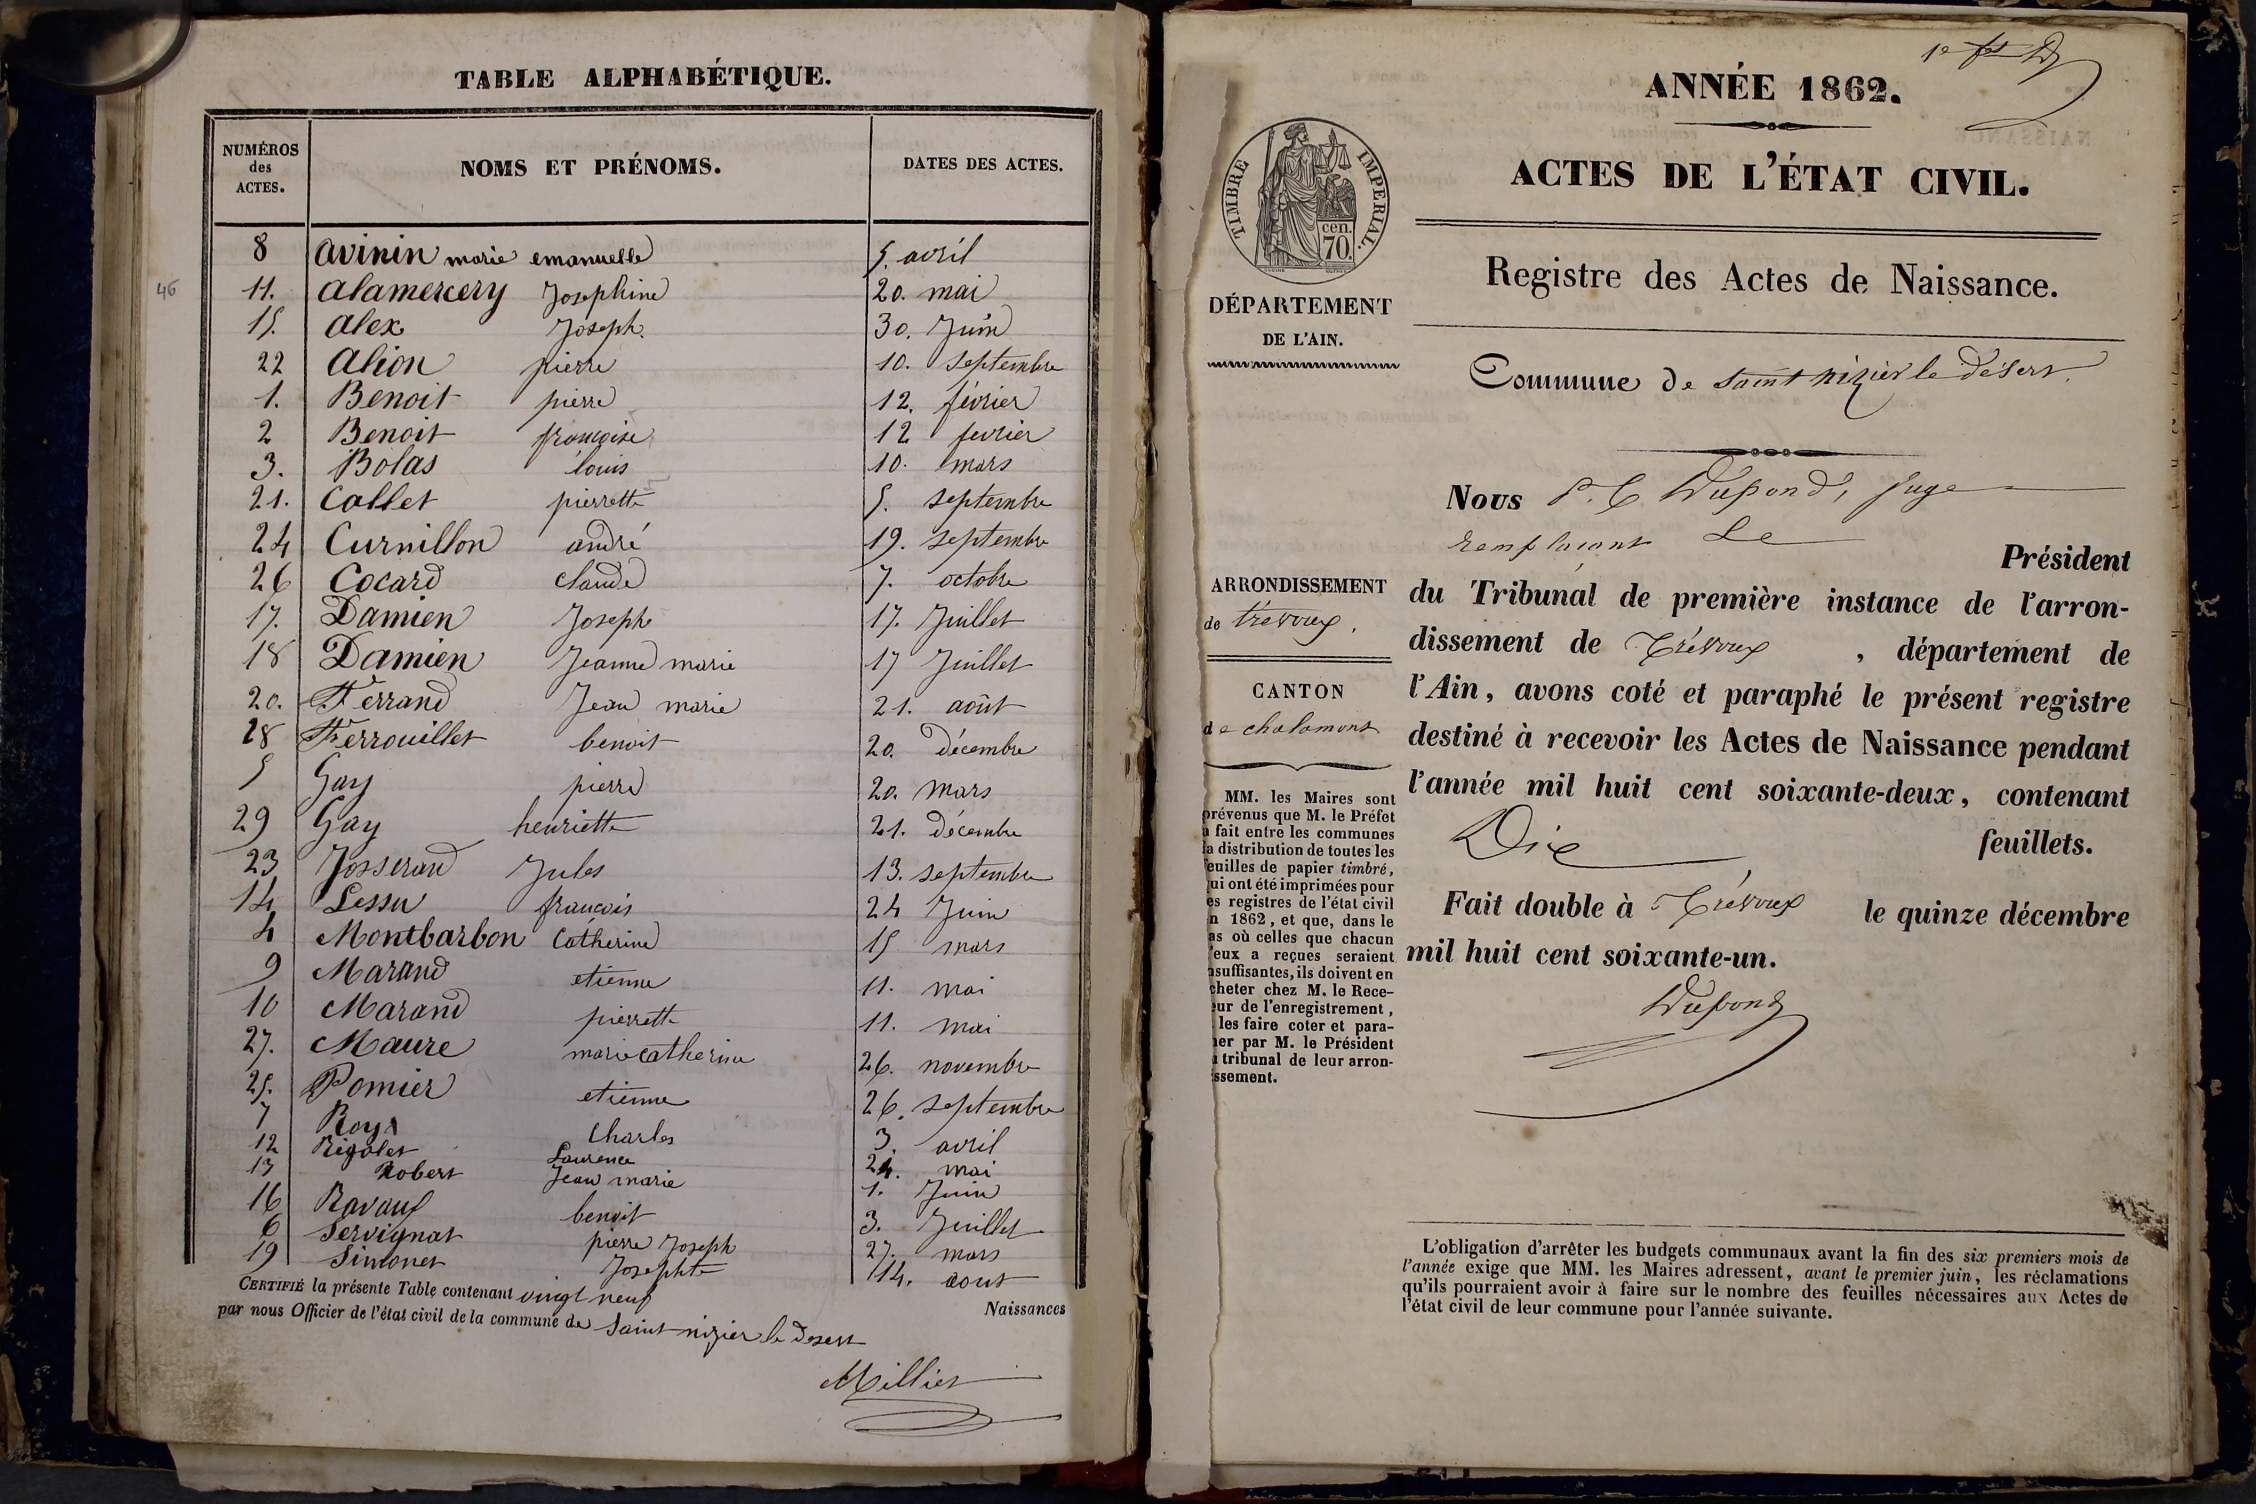 TABLE ALPHABÉTIQUE.
NUMÉROS des ACTES. NOMS ET PRÉNOMS. DATES DES ACTES.
8 avinin marie emanuelle 5. avril
46
11. alamercery Josephine 20. mai
15. alex Joseph. 30. Juin
22 alion pierre 10. septembre
1. Benoit pierre 12. février
2 Benoit francoise 12 fevrier
3. Bolas louis 10. mars
21. Collet pierrette 5. septembre
24 Curnillon andré 19. septembre
26 Cocard claude 7. octobre
17. Damien Joseph 17. Juillet
18 Damien Jeanne marie 17 Juillet
20. Ferrand Jean marie 21. août
28 Ferrouillet benoit 20. Décembre
5 Gay pierre 20. mars
29 Gay henriette 21. décembre
23 Josserand Jules 13. septembre
14 Lessu francois 24 Juin
4 Montbarbon Catherine 15 mars
9 Marand etienne 11. mai
10 Marand pierrette 11. mai
27. Maure marie catherine 26. novembre
25. Pomier etienne 26. septembre
7 Roy Charles 3. avril
12 Rigolet Laurence 24. mai
13 Robert Jean marie 1. Juin
16 Ravaux benoit 3. Juillet
6 Servignat pierre Joseph 27. mars
19 Simonet Josephte 14. aout
CERTIFIÉ la présente Table contenant vingt neuf Naissances
par nous Officier de l'état civil de la commune de Saint nizier le desert
Milliet
ANNÉE 1862.
ACTES DE L'ÉTAT CIVIL.
Registre des Actes de Naissance.
Commune de Saint nizier le Désert.
TIMBRE IMPERIAL.
cen.
70.
DÉPARTEMENT
DE L'AIN.
ARRONDISSEMENT
de trévoux.
CANTON
de chalamont
MM. les Maires sont
prévenus que M. le Préfet
a fait entre les communes
la distribution de toutes les
feuilles de papier timbré,
qui ont été imprimées pour
es registres de l'état civil
n 1862, et que, dans le
as où celles que chacun
'eux a reçues seraient
nsuffisantes, ils doivent en
cheter chez M. le Rece-
eur de l'enregistrement,
les faire coter et para-
her par M. le Président
u tribunal de leur arron-
issement.
Nous P. C. Dupond, Juge
remplaçant Le
Président
du Tribunal de première instance de l'arron-
dissement de Trévoux, département de
l'Ain, avons coté et paraphé le présent registre
destiné à recevoir les Actes de Naissance pendant
l'année mil huit cent soixante-deux, contenant
Dix feuillets.
Fait double à Trévoux le quinze décembre
mil huit cent soixante-un.
Dupond
L'obligation d'arrêter les budgets communaux avant la fin des six premiers mois de
l'année exige que MM. les Maires adressent, avant le premier juin, les réclamations
qu'ils pourraient avoir à faire sur le nombre des feuilles nécessaires aux Actes de
l'état civil de leur commune pour l'année suivante.